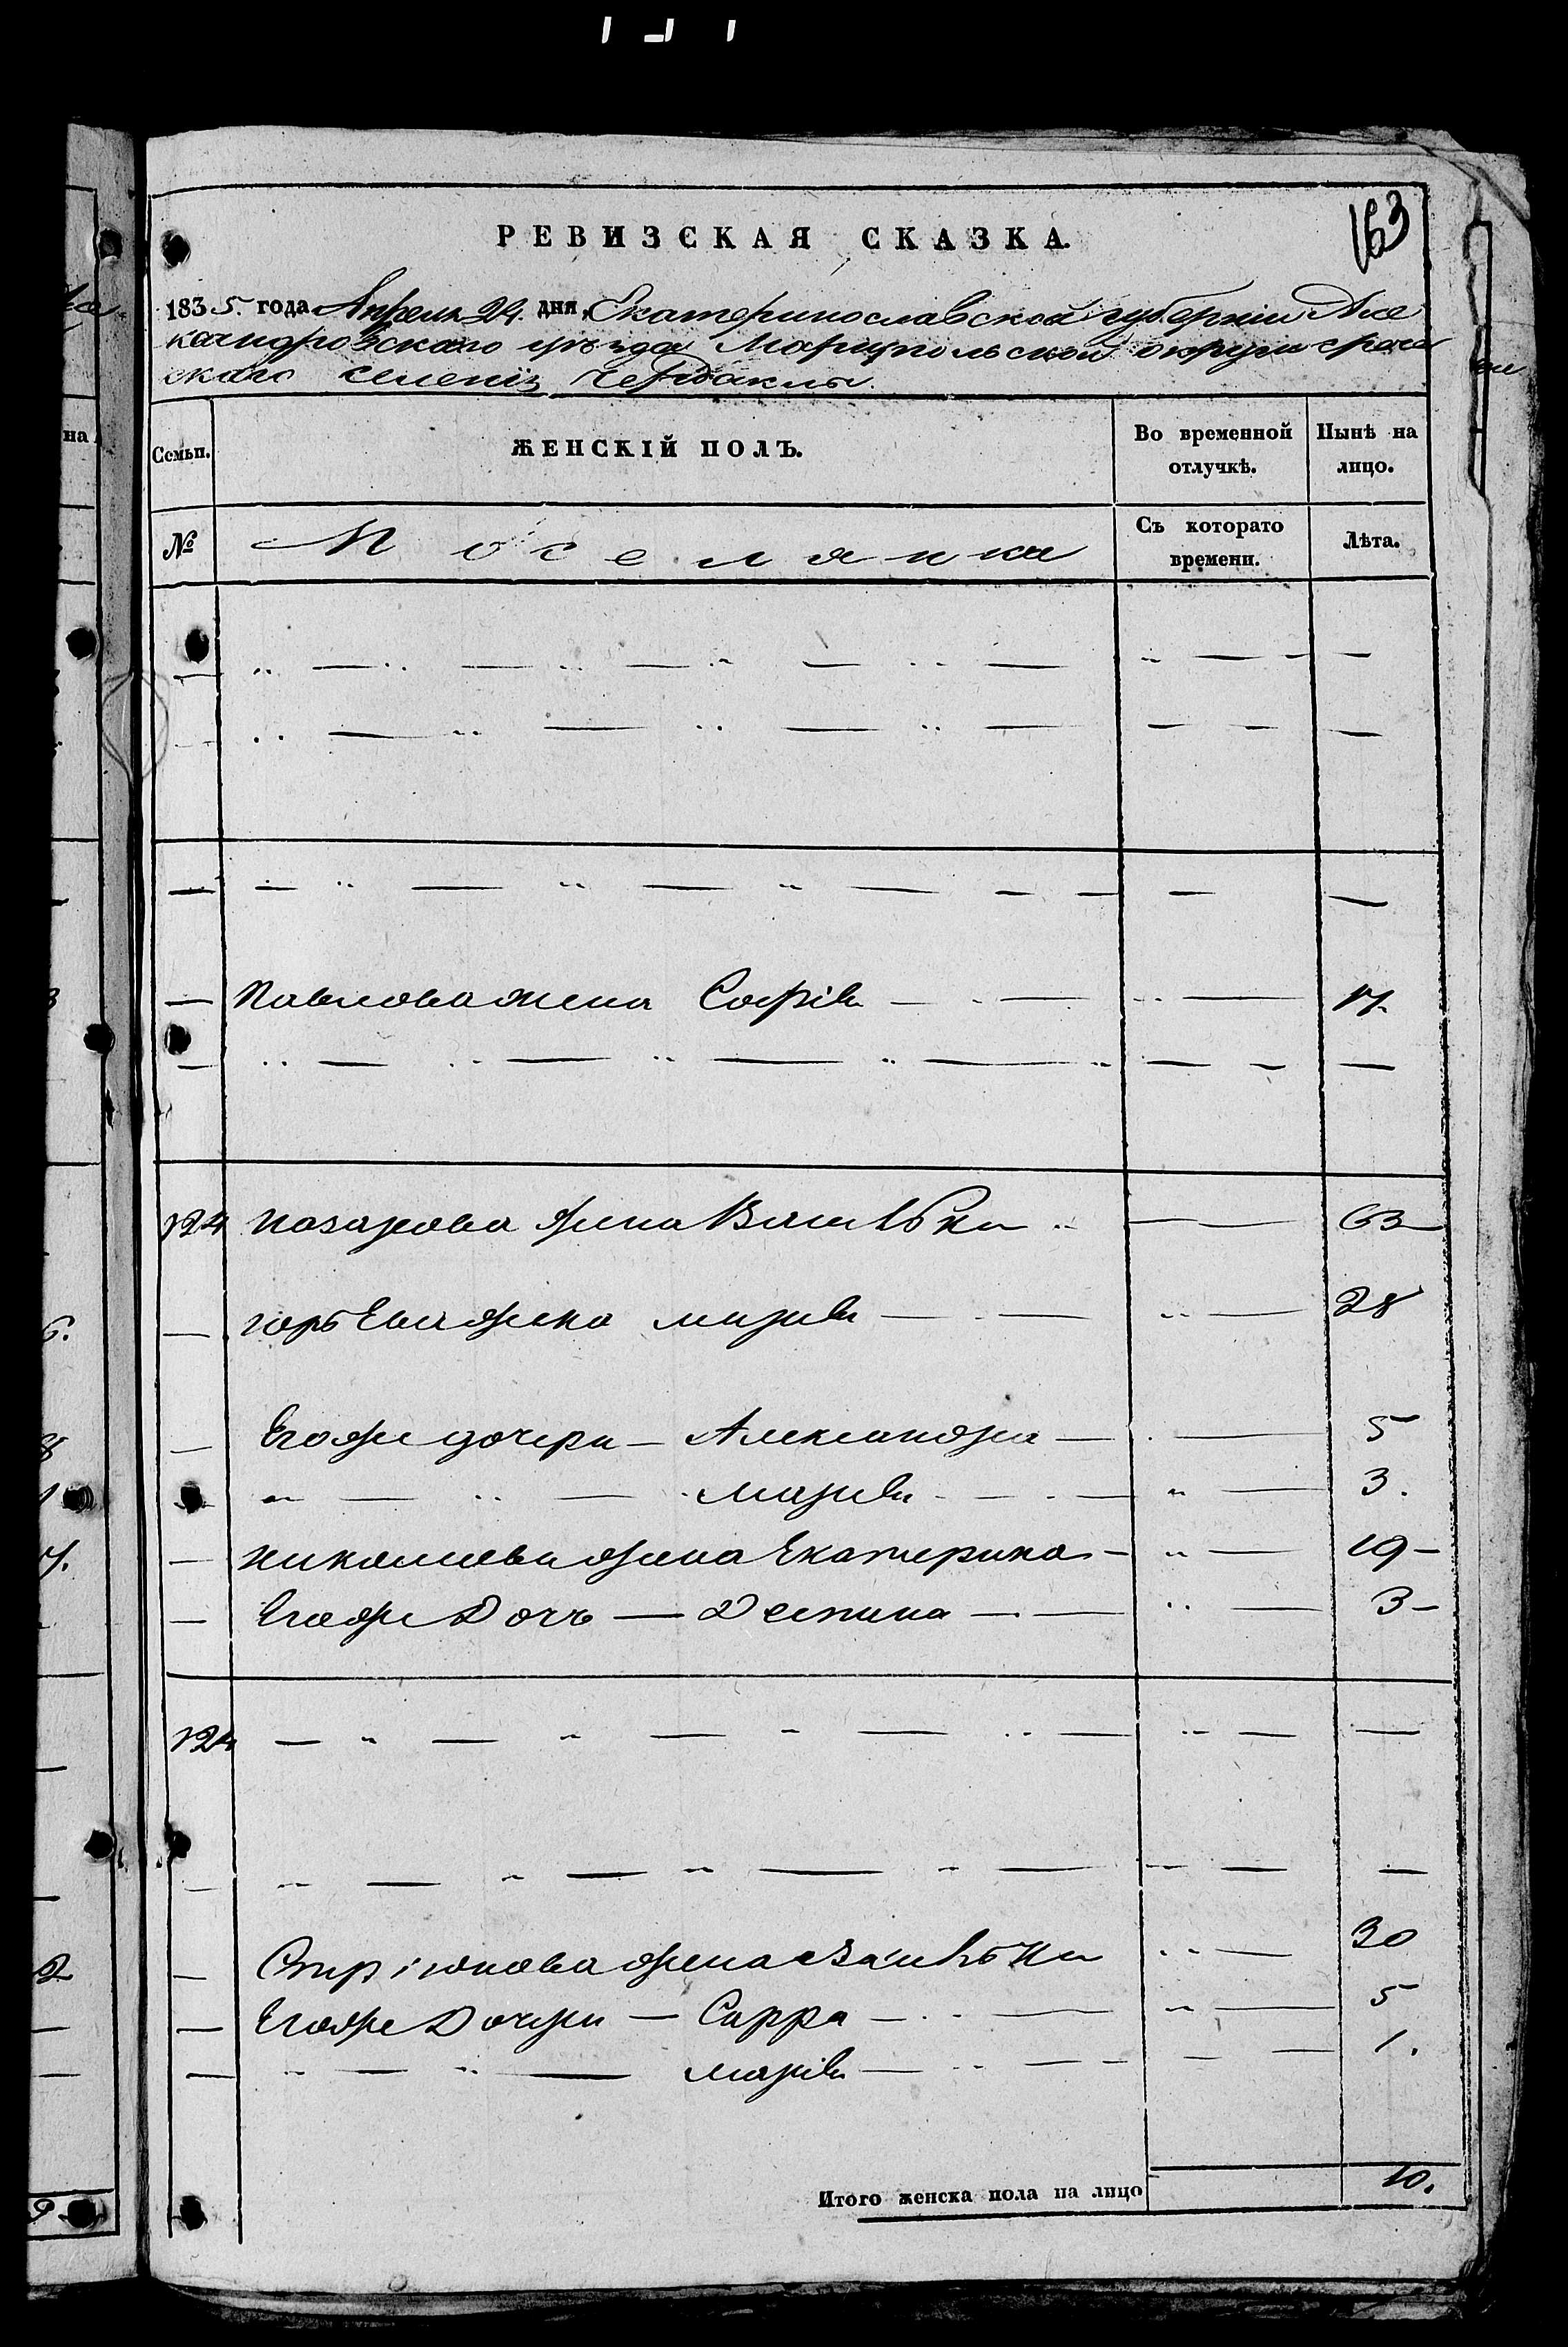 163
РЕВИЗСКАЯ СКАЗКА.
1835. года Апреля 24. дня, Екатеринославской губерніи Але
ксандровского уѣзда Мариупольской округи грече
скаго селенія Чердаклы.
Семьи. ЖЕНСКІЙ ПОЛЪ. Во временной отлучкѣ. Нынѣ на лицо.
№ Поселянка Съ которато времени. Лѣта.
Павлова жена Софія 17.
124 Назарова жена Василѣки 63
Юрьева жена Марія 28
Егоже дочери Александра 5
Марія 3.
Николаева жена Екатерина 19
Егоже Дочь Деспина 3
124
Стріонова жена 30
Егоже Дочери Сарра 5
Марія 1.
Итого женска пола на лицо 10.